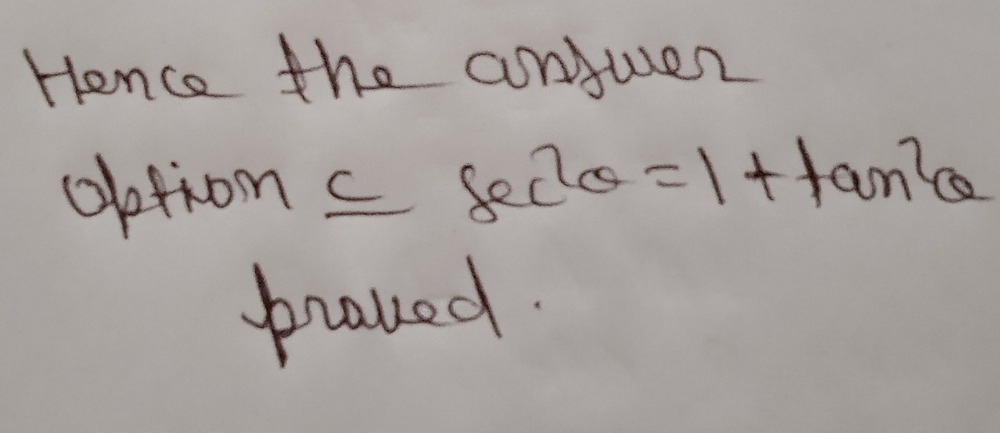 Hence the answer
option c sec²θ = 1 + tan²θ
proved.